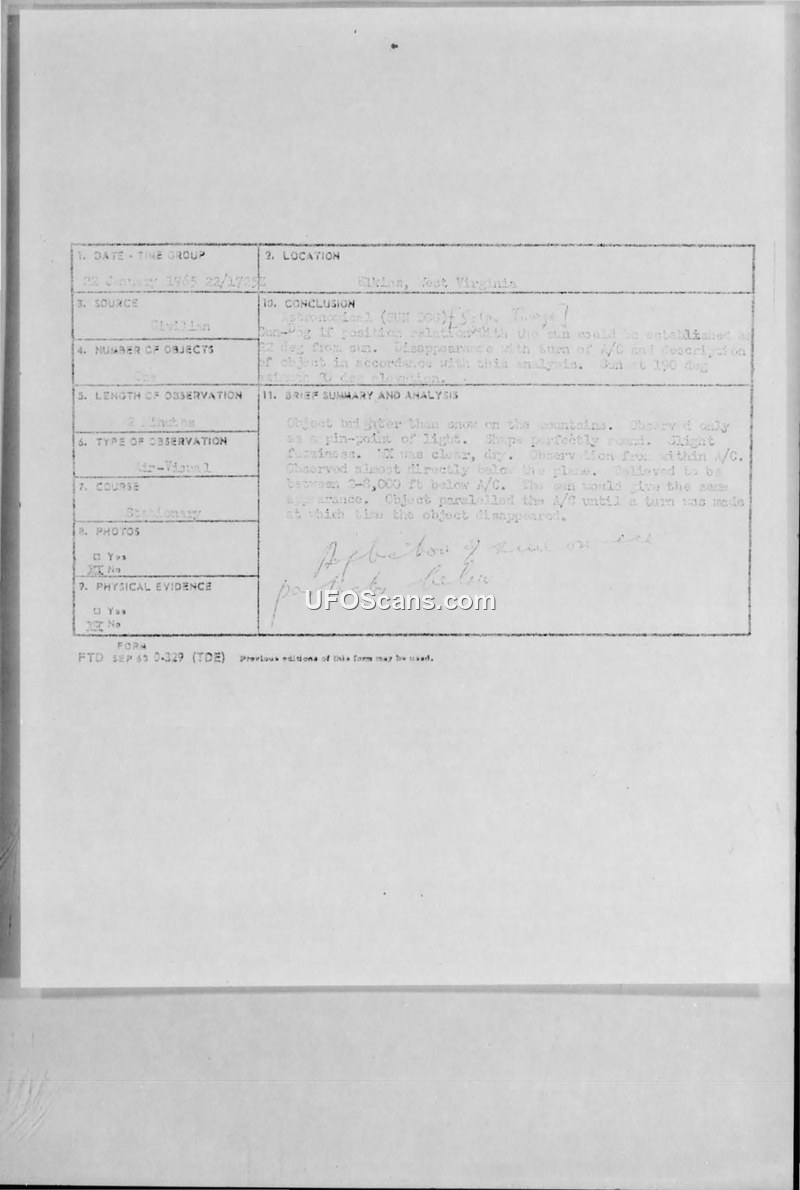 1. DATE - TIME GROUP
22 January 1965 22/1725Z
2. LOCATION
Elkins, West Virginia
3. SOURCE
Civilian
10. CONCLUSION
Astronomical (SUN DOG)
Sun-Dog if position relation with the sun could be established as
22 deg from sun. Disappearance with turn of A/C and description
of object in accordance with this analysis. Sun at 190 deg
deg elevation.
4. NUMBER OF OBJECTS
One
5. LENGTH OF OBSERVATION
2 Minutes
11. BRIEF SUMMARY AND ANALYSIS
Object brighter than snow on the mountains. Observed only
as a pin-point of light. Shape perfectly round. Slight
fuzziness. WX was clear, dry. Observation from within A/C.
Observed almost directly below the plane. Believed to be
between 2-8,000 ft below A/C. The sun would give the same
appearance. Object paralelled the A/C until a turn was made
at which time the object disappeared.
Reflection of sun on ice
particles below
6. TYPE OF OBSERVATION
Air-Visual
7. COURSE
Stationary
8. PHOTOS
□ Yes
XX No
9. PHYSICAL EVIDENCE
□ Yes
XX No
FORM
FTD SEP 63 0-329 (TDE) Previous editions of this form may be used.
UFOScans.com